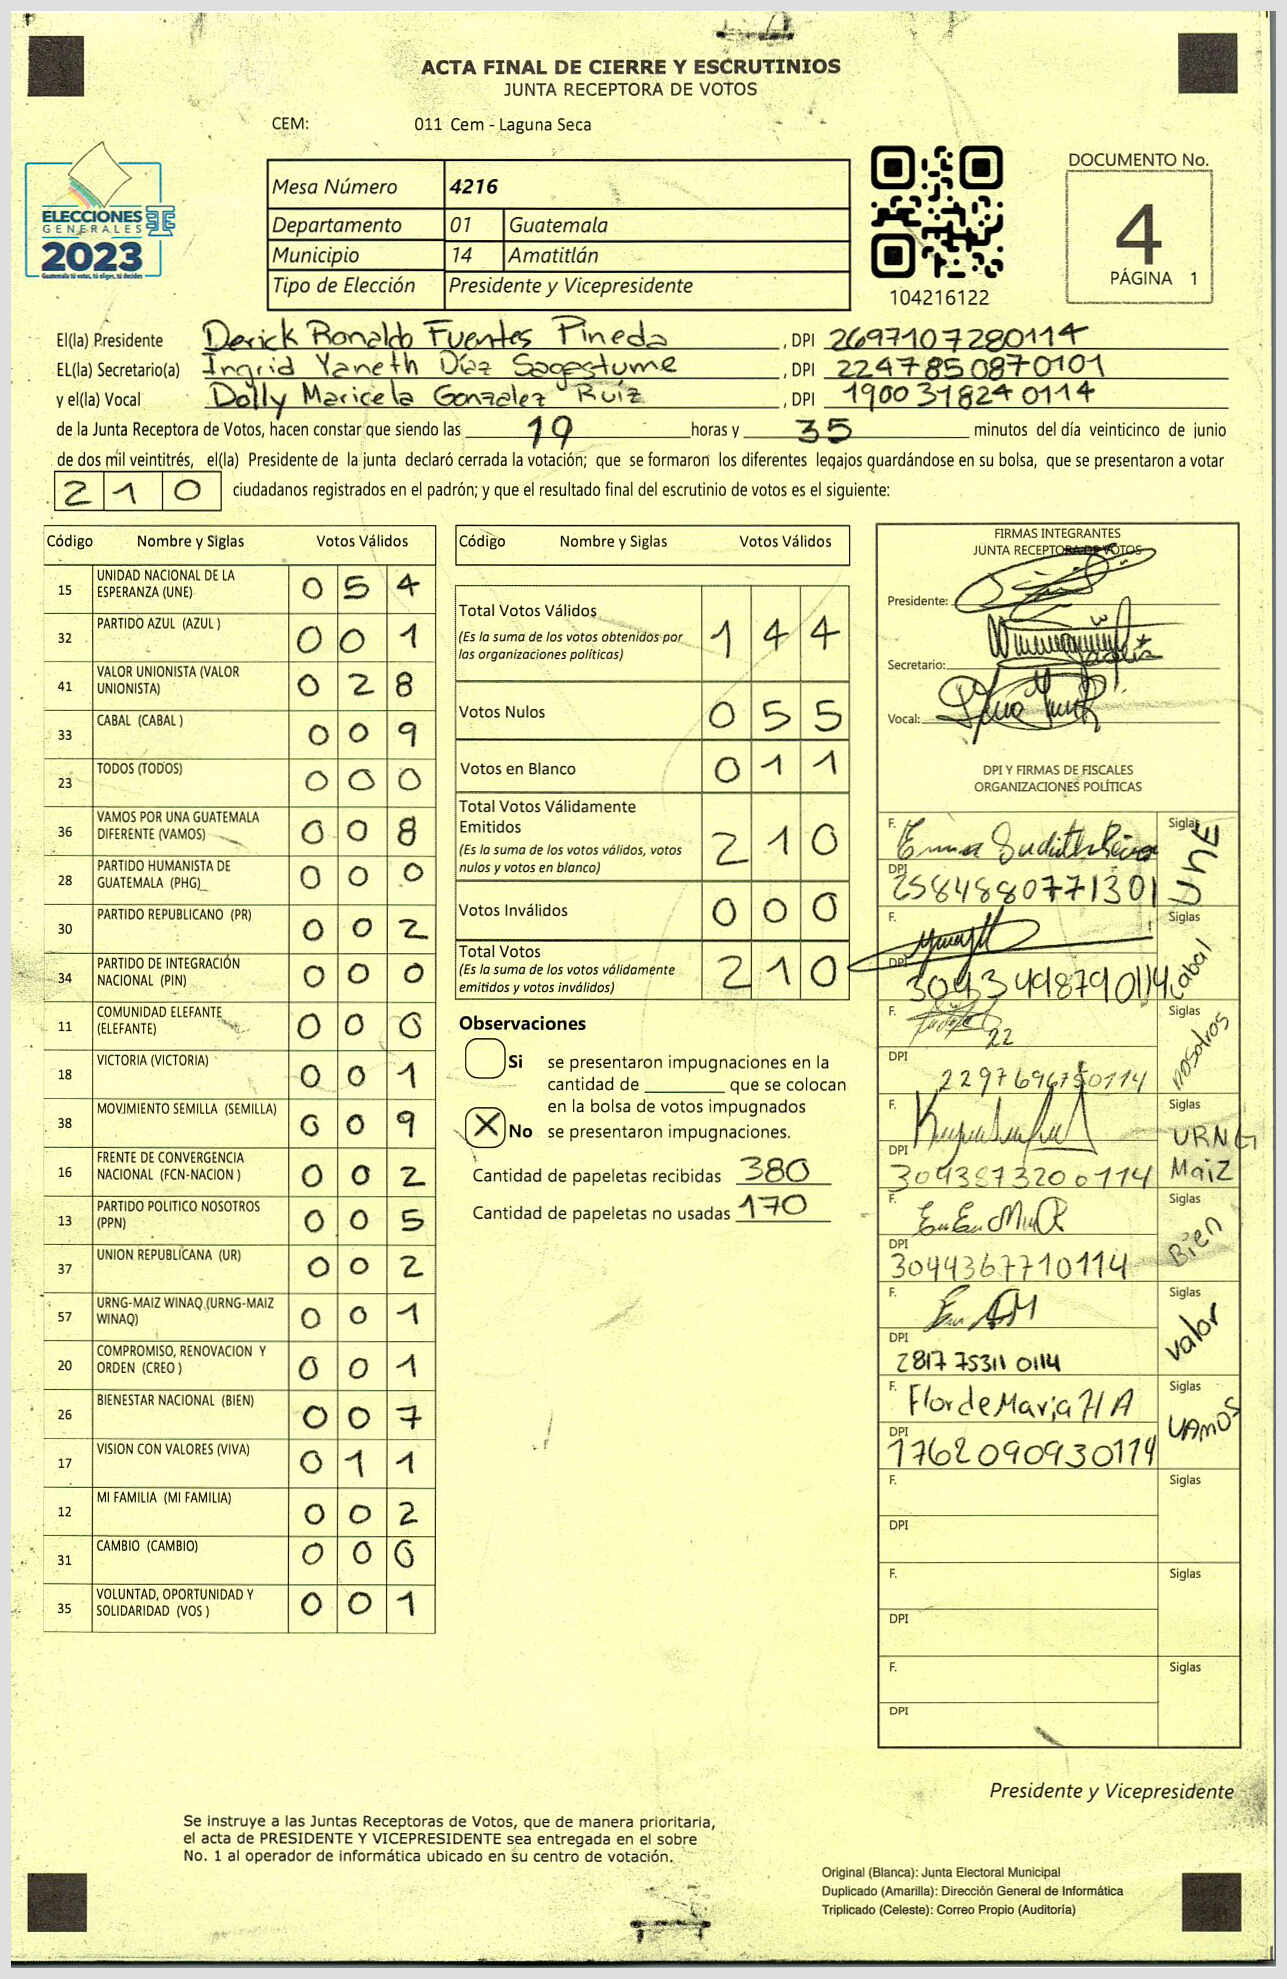 ACTA FINAL DE CIERRE Y ESCRUTINIOS
JUNTA RECEPTORA DE VOTOS
CEM: 011 Cem - Laguna Seca
ELECCIONES
GENERALES
2023
Guatemala tú votas, tú eliges, tú decides
Mesa Número 4216
Departamento 01 Guatemala
Municipio 14 Amatitlán
Tipo de Elección Presidente y Vicepresidente
104216122
DOCUMENTO No.
4
PÁGINA 1
El(la) Presidente Derick Ronaldo Fuentes Pineda , DPI 2697107280114
EL(la) Secretario(a) Ingrid Yaneth Díaz Sagastume , DPI 2247850870101
y el(la) Vocal Dolly Maricela Gonzalez Ruíz , DPI 1900318240114
de la Junta Receptora de Votos, hacen constar que siendo las 19 horas y 35 minutos del día veinticinco de junio
de dos mil veintitrés, el(la) Presidente de la junta declaró cerrada la votación; que se formaron los diferentes legajos guardándose en su bolsa, que se presentaron a votar
210 ciudadanos registrados en el padrón; y que el resultado final del escrutinio de votos es el siguiente:
Código Nombre y Siglas Votos Válidos
15 UNIDAD NACIONAL DE LA ESPERANZA (UNE) 054
32 PARTIDO AZUL (AZUL ) 001
41 VALOR UNIONISTA (VALOR UNIONISTA) 028
33 CABAL (CABAL ) 009
23 TODOS (TODOS) 000
36 VAMOS POR UNA GUATEMALA DIFERENTE (VAMOS) 008
28 PARTIDO HUMANISTA DE GUATEMALA (PHG)_ 000
30 PARTIDO REPUBLICANO (PR) 002
34 PARTIDO DE INTEGRACIÓN NACIONAL (PIN) 000
11 COMUNIDAD ELEFANTE (ELEFANTE) 000
18 VICTORIA (VICTORIA) 001
38 MOVIMIENTO SEMILLA (SEMILLA) 009
16 FRENTE DE CONVERGENCIA NACIONAL (FCN-NACION ) 002
13 PARTIDO POLITICO NOSOTROS (PPN) 005
37 UNION REPUBLICANA (UR) 002
57 URNG-MAIZ WINAQ (URNG-MAIZ WINAQ) 001
20 COMPROMISO, RENOVACION Y ORDEN (CREO ) 001
26 BIENESTAR NACIONAL (BIEN) 007
17 VISION CON VALORES (VIVA) 011
12 MI FAMILIA (MI FAMILIA) 002
31 CAMBIO (CAMBIO) 000
35 VOLUNTAD, OPORTUNIDAD Y SOLIDARIDAD (VOS ) 001
Código Nombre y Siglas Votos Válidos
Total Votos Válidos 144
(Es la suma de los votos obtenidos por
las organizaciones políticas)
Votos Nulos 055
Votos en Blanco 011
Total Votos Válidamente
Emitidos 210
(Es la suma de los votos válidos, votos
nulos y votos en blanco)
Votos Inválidos 000
Total Votos 210
(Es la suma de los votos válidamente
emitidos y votos inválidos)
Observaciones
Si se presentaron impugnaciones en la
cantidad de ________ que se colocan
en la bolsa de votos impugnados
X No se presentaron impugnaciones.
Cantidad de papeletas recibidas 380
Cantidad de papeletas no usadas 170
FIRMAS INTEGRANTES
JUNTA RECEPTORA DE VOTOS
Presidente:
Secretario:
Vocal:
DPI Y FIRMAS DE FISCALES
ORGANIZACIONES POLÍTICAS
F. Siglas UNE
DPI 2584880771301
F. Siglas Cabal
DPI 30434498790114
F. 22 Siglas nosotros
DPI
F. Siglas URNG
DPI 3043873200114 Maiz
F. Siglas Bien
DPI 3044367710114
F. Siglas valor
DPI 2817 75311 0114
F. Flor de Maria H A Siglas VAMOS
DPI 1762090930114
F. Siglas
DPI
F. Siglas
DPI
F. Siglas
DPI
Presidente y Vicepresidente
Se instruye a las Juntas Receptoras de Votos, que de manera prioritaria,
el acta de PRESIDENTE Y VICEPRESIDENTE sea entregada en el sobre
No. 1 al operador de informática ubicado en su centro de votación.
Original (Blanca): Junta Electoral Municipal
Duplicado (Amarilla): Dirección General de Informática
Triplicado (Celeste): Correo Propio (Auditoría)